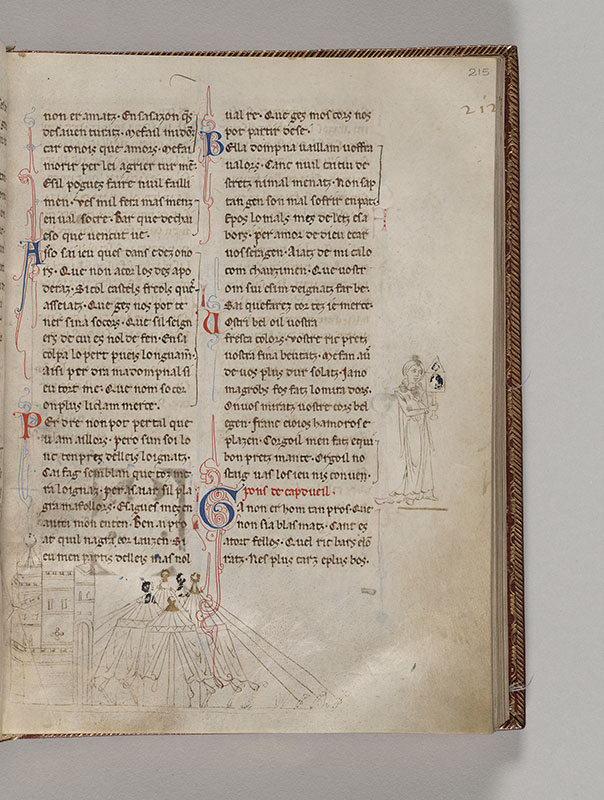 215
212
non er amatz. En sa sazon q̃s
desauenturatz. Mefail midõs
car conois que amors. Me fai
morir per lei a grier turmẽ.
E sil pogues faire nuill failli
men. Ves mil feta mas menz
en ual socre. Bar que dechai
e so que uencut ue.
Aisso sai ieu ques danz e dezono
rs. Que non acor los des apo
deraz. Si col castels freols quẽ
asseiatz. Que ges nos pot te
ner sin a socors. Que sil seign
ers de cui es nol de fen. En sa
colpa lo pert pueis longuam̃.
Aisi per dra ma domp nal si
eu tort me. Que nom socor
on plus li clam merce.
Per dre non pot per tal que
u lam aillors. pero sun soi lo
nc tenpez delleis loignatz.
Cai fag semblan que tor me
ra loignatz. per asaiar sil pla
gra ma follors.
autei mon enten. Ben ai pro
at quil nagra cor iauzen. Si
eu men partis delleis mas nol
ual re. Que ges mos cors nos
pot partir de se.
Bella dompna uaillam uostra
ualors. Canc nuil caitiu de
stretz nim al menatz. Non sap
tan gen son mal soffrir en patz
E pos lo mals mez de letz e sa
bors. per amor de dieu e car
uos sezagen. Aiatz de mi calo
com chauzimen. Que uostr
om sui e sim deignatz far be.
Sai que farez cor tez ie merce.
Uostri bel oil uostra
fresca colors. Vostre ric pretz
uostra fina beutatz. Me fan aũ
de uos plus dur solatz. Ia no
magrobs fos fatz lo mira dors.
On uos miratz uostre cors bel
e gen. franc e ioios hamoros e
plazen. Corgoil men fatz e qui
bon pretz mante. Orgoil no
staig uas los ieu nis conuen.
pons de capdueil.
Ga non er hom tan pros. Que
non sia blasmatz. Cant es
a tort fellos. Quel ric bars es õ
ratz. Nes plus car z e plus bos.